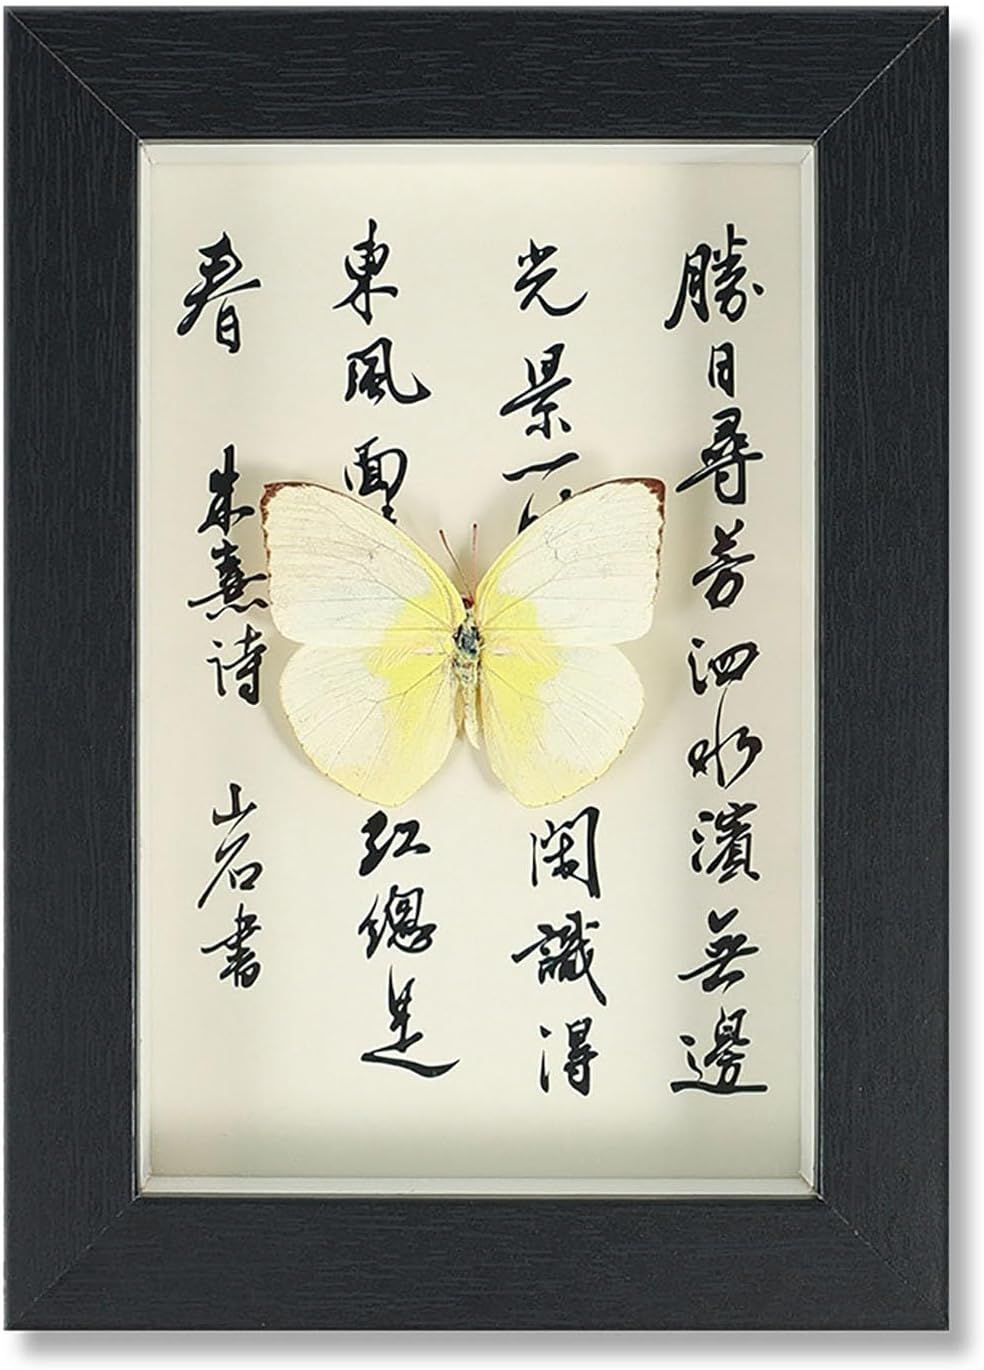 勝日尋芳泗水濱無邊
光景一閑識得
東風面紅總是
春 朱熹詩 山石書